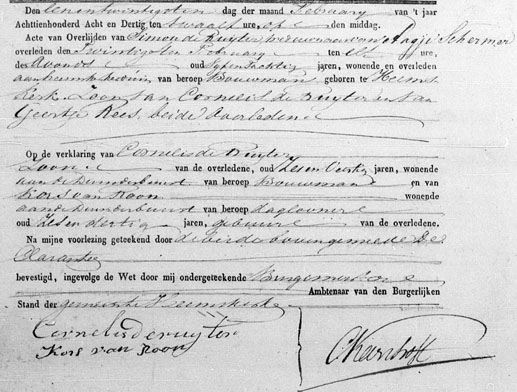 Den eenentwintigsten dag der maand February van 't jaar
Achttienhonderd Acht en Dertig ten twaalf ure, op den middag.
Acte van Overlijden van Simon de Ruyter, weduwnaar van Aagje Schermer
overleden den Twintigsten February ten elf ure.
des Avonds oud Tachtig jaren, wonende en overleden
aan van beroep Bouwman geboren te Heems
kerk. Zoon van Cornelis de Ruyter en van
Geertje Rees, beide Overleden
Op de verklaring van Cornelis de Ruyter
Zoon van de overledene, oud Zes en Veertig jaren, wonende
aan de van beroep Bouwman en van
Kors van Roon wonende
aan de van beroep daglooner
oud Zes en dertig jaren, gebuur van de overledene.
Na mijne voorlezing geteekend door de beide bovengemelde De
Claranten
bevestigd, ingevolge de Wet door mij ondergeteekende Burgemeester
Ambtenaar van den Burgerlijken
Stand der gemeente Heemskerk
Cornelis de ruyter
Kors van Roon